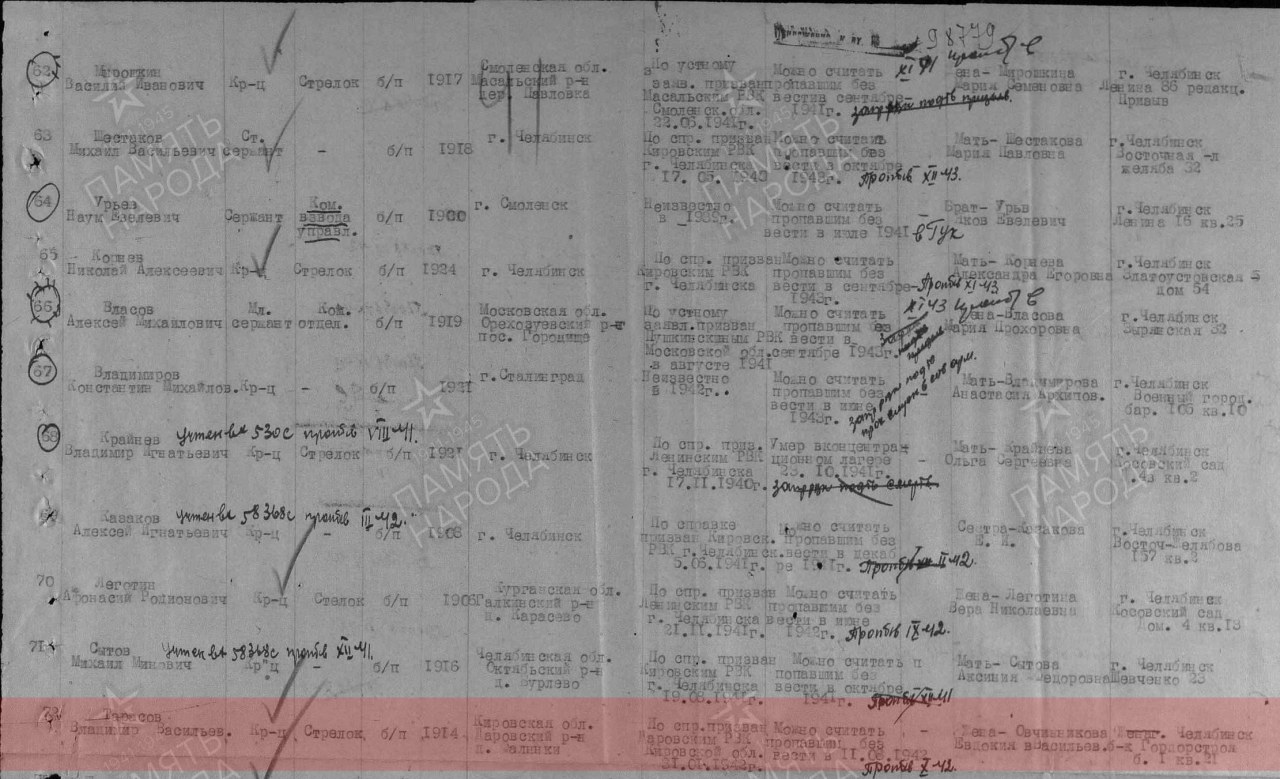 98779
62 Мирошкин Смоленская обл. По устному Можно считать XI 41 Жена- Мирошкина г. Челябинск
Василий Иванович Кр-ц Стрелок б/п 1917 Масальский р-н заяв. призван пропавшим без Мария Семеновна Ленина 86 редакц.
дер. Павловка Масальским РВК вести в сентябре- Призыв
Смоленск.обл. 1941г.
22.06.1941г.
63 Шестаков Ст. г. Челябинск По спр. призван Можно считать Мать- Шестакова г.Челябинск
Михаил Васильевич сержант - б/п 1918 Кировским РВК пропавшим без Мария Павловна Восточная -л
г. Челябинска вести в октябре желяба 32
17. 05. 1943г. Пропбв XII 43.
64 Урьев Ком. г. Смоленск Неизвестно Можно считать Брат- Урьв г.Челябинск
Наум Евелевич Сержант взвода б/п 1900 в 1939г. пропавшим без Яков Евелевич Ленина 16 кв.25
управл. вести в июле 1941
65 Корнев По спр. призван Можно считать Мать- Корнева г.Челябинск
Николай Алексеевич Кр-ц Стрелок б/п 1924 г. Челябинск Кировским РВК пропавшим без Александра Егоровна Златоустовская 5
г. Челябинска вести в сентябре- Пропбв XI 43 дом 54
1943г.
66 Власов Мл. Ком. Московская обл. По устному Можно считать XI 43 Жена-Власова г. Челябинск
Алексей Михайлович сержант отдел. б/п 1919 Ореховуевский р-н заявл.призван пропавшим без Мария Прохоровна Зырянская 32
пос. Городище Пушкинским РВК вести в
Московской обл. сентябре 1943г.
в августе 1941
67 Владимиров г.Сталинград Неизвестно Можно считать Мать-Владимирова г. Челябинск
Константин Михайлов. Кр-ц - б/п 1921 в 1942г. пропавшим без - Анастасия Архипов. Военный город.
вести в июне бар. 106 кв.10
1943г.
68 Крайнев учтен вх 530с пропбв VIII 41. По спр. призв. Умер вконцентра- Мать- Крайнева г. Челябинск
Владимир Игнатьевич Кр-ц Стрелок б/п 1921 г. Челябинск Ленинским РВК ционном лагере - Ольга Сергеевна Косовский сад
г. Челябинска 23. 10.1941г. 43 кв.2
17.11.1940г.
69 Казаков учтен вх 58368с пропбв III 42. По справке Можно считать Сестра-Казакова г.Челябинск
Алексей Игнатьевич Кр-ц - б/п 1908 г. Челябинск призван Кировск. пропавшим без Е. И. Восточ-Желябова
РВК г.Челябинск. вести в декаб 157 кв.2
5.08.1941г. ре 1941г. Пропбв II 42.
70 Леготин Курганская обл. По спр. призван Можно считать Жена- Леготина г. Челябинск
Афонасий Родионович Кр-ц Стелок б/п 1905 Галкинский р-н Ленинским РВК пропавшим без Вера Николаевна Косовский сад
Карасево г. Челябинска вести в июне дом. 4 кв.13
21.11.1941г. 1942г. Пропбв IX 42.
71 Сытов учтен вх 58368с пропбв XII 41. Челябинская обл. По спр. призван Можно считать п Мать- Сытова г. Челябинск
Михаил Минович Кр-ц - б/п 1916 Октябьский р-н Кировским РВК попавшим без Аксиния Федоровна Шевченко 23
д. Бурлево г. Челябинска вести в октябре
1941г. Пропбв XII 41
72 Тарасов Кировская обл. По спр.призван Можно считать - Жена- Овчинникова г. Челябинск
Владимир Васильев. Кр-ц Стрелок б/п 1914 Шаровским РВК пропавшим без Евдокия вВасильев. б-к Гордорстроя
д. Малинки Кировской обл. вести в 11.08 1942 б. 1 кв.21
Пропбв X 42.
ПАМЯТЬ НАРОДА